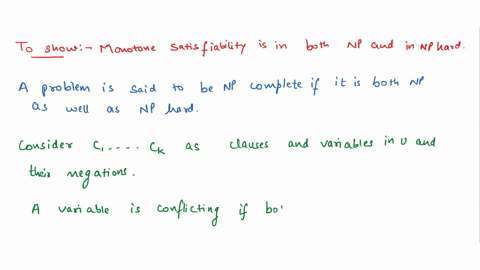 To show:- Monotone satisfiability is in both NP and in NP hard.
A problem is said to be NP complete if it is both NP
as well as NP hard.
Consider C1,.... Ck as clauses and variables in U and
their negations.
A variable is conflicting if bo